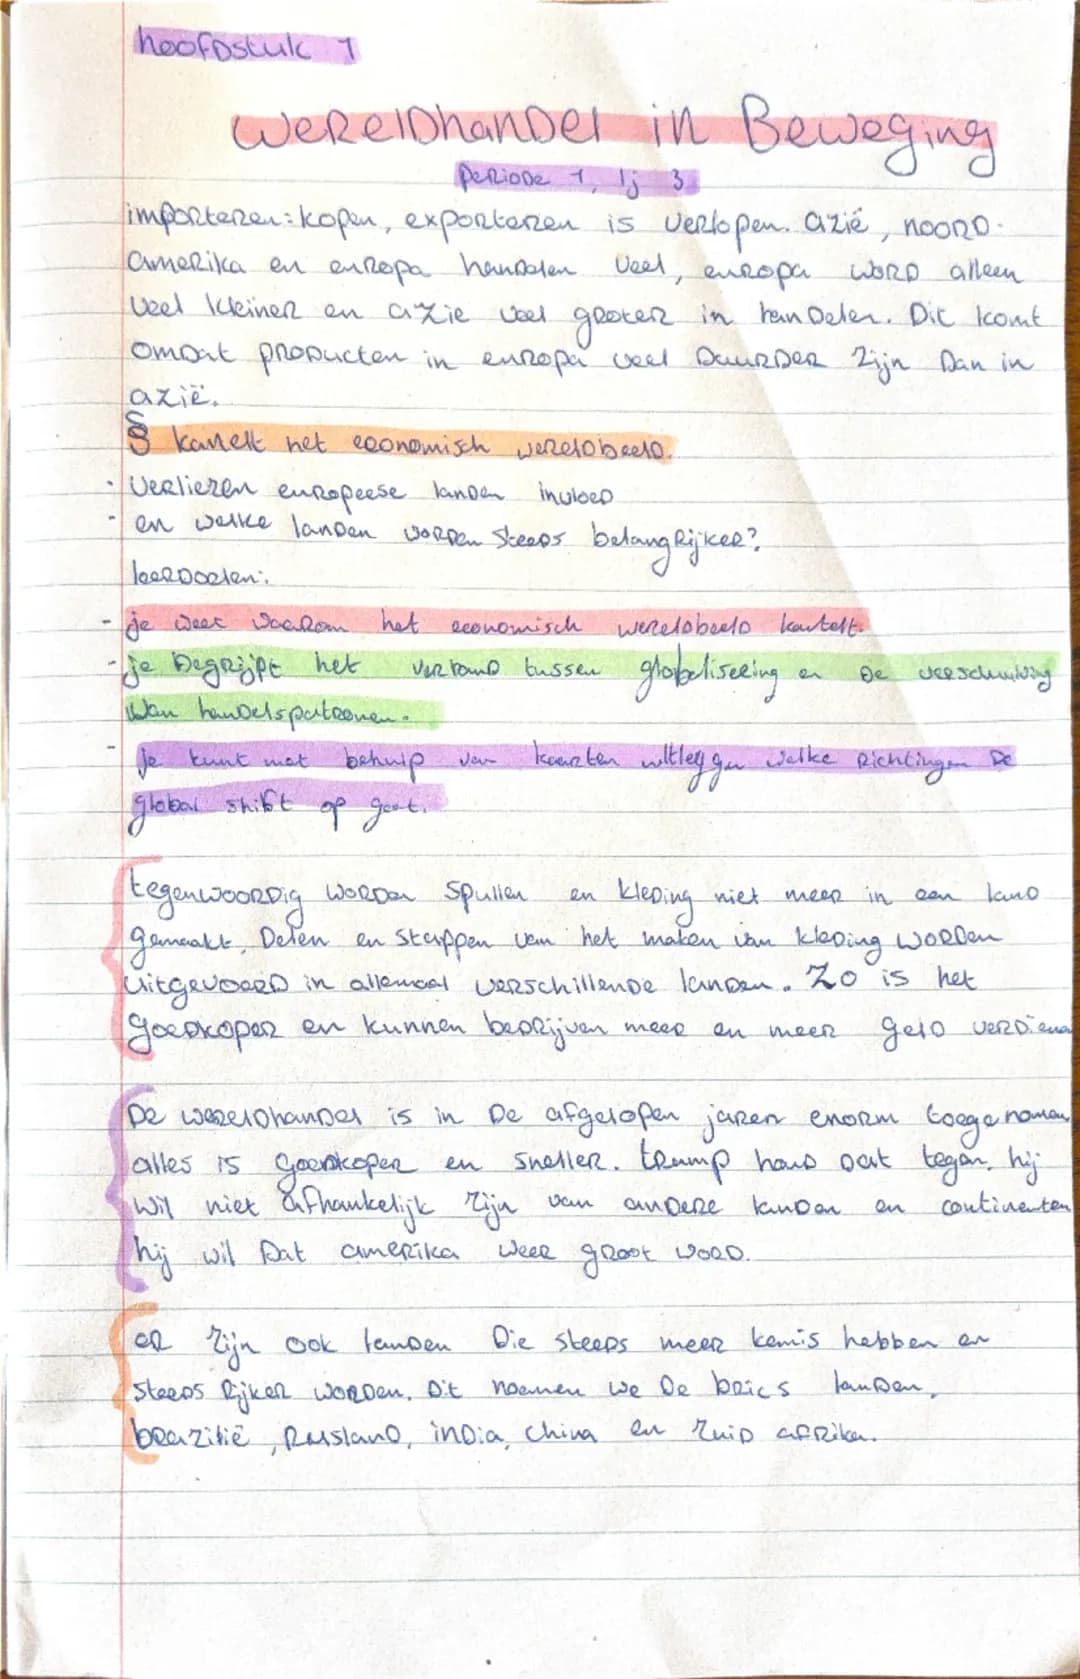 hoofdstuk 1
Wereldhandel in Beweging
Periode 1, lj 3
importeren: kopen, exporteren is verlopen. azië, noord-
amerika en europa handelen veel, europa word alleen
veel kleiner en azie veel groter in handelen. Dit komt
omdat producten in europa veel Duurder zijn Dan in
azië.
§ kanelt het economisch wereldbeeld.
· Verliezen europeese landen invloed
- en welke landen worden steeds belangrijker?
leerdoelen:
- je weet waarom het economisch wereldbeeld kantelt.
- je begrijpt het verband tussen globalisering en de verschuiving
van handelspatronen.
- je kunt met behulp van kaarten uitleggen welke richtingen de
global shift op gaat.
tegenwoordig worden spullen en kleding niet meer in een land
gemaakt. Delen en stappen van het maken van kleding worden
uitgevoerd in allemaal verschillende landen. Zo is het
goedkoper en kunnen bedrijven meer en meer geld verdienen
De wereldhandel is in De afgelopen jaren enorm toegenomen
alles is goedkoper en sneller. trump houd dat tegen, hij
wil niet afhankelijk zijn van andere landen en continenten
hij wil Dat amerika weer groot word.
er zijn ook landen Die steeds meer kennis hebben en
steeds rijker worden. Dit noemen we De brics landen,
brazilië, Rusland, india, china en zuid afrika.